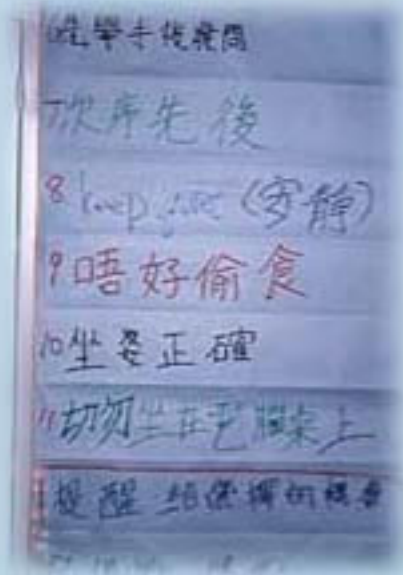 6先舉手後發問
7次序先後
8 keep quiet (安靜)
9唔好偷食
10坐姿正確
11切勿坐在電腦桌上
提醒